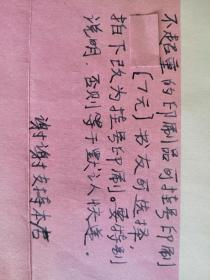 不超重的印刷品可挂号印刷
(7元)书友可选择
拍下改为挂号印刷。要特别
说明,否则等于默认快递。
谢谢支持本店